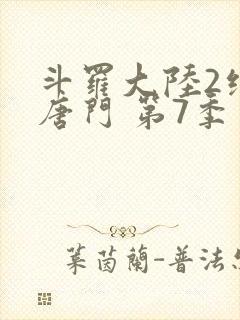 斗羅大陸2
唐門 第7季
葉茵蘭-普法